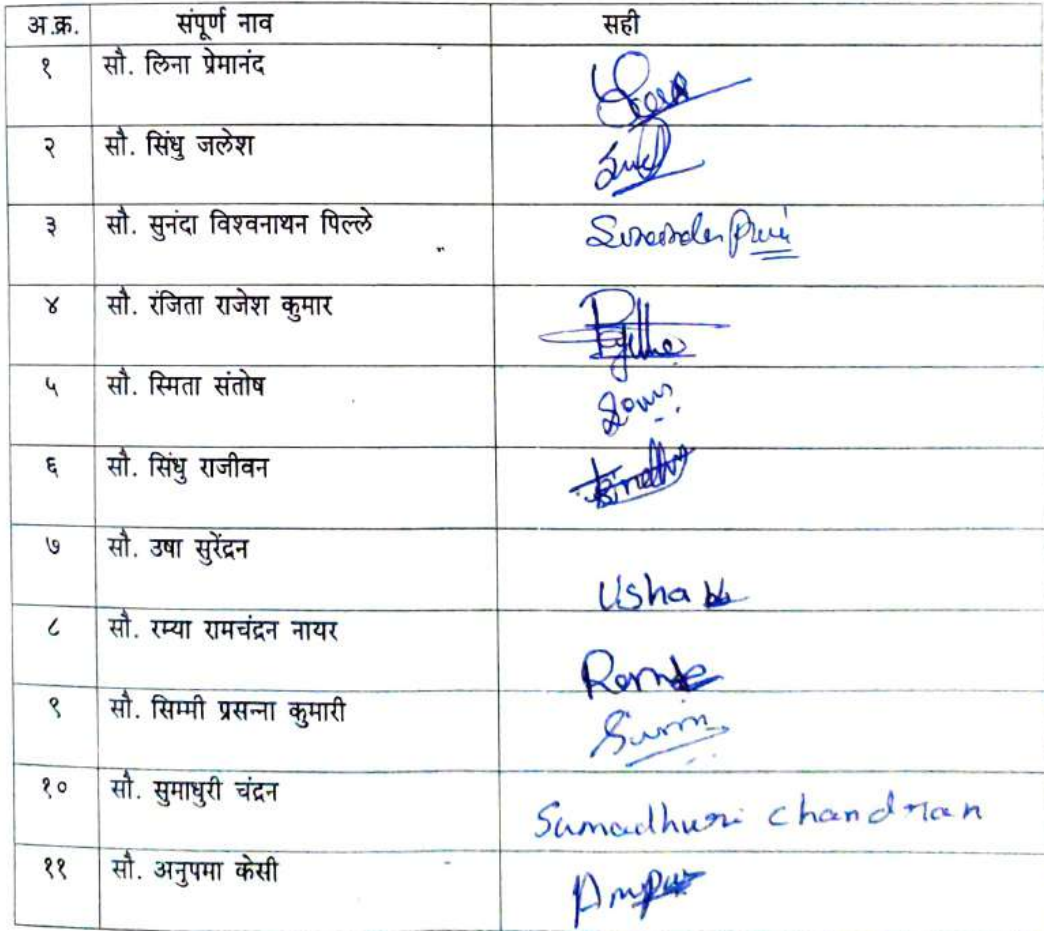 अ.क्र. संपूर्ण नाव सही
१ सौ. लिना प्रेमानंद
२ सौ. सिंधु जलेश
३ सौ. सुनंदा विश्वनाथन पिल्ले
४ सौ. रंजिता राजेश कुमार
५ सौ. स्मिता संतोष
६ सौ. सिंधु राजीवन
७ सौ. उषा सुरेंद्रन Usha
८ सौ. रम्या रामचंद्रन नायर
९ सौ. सिम्मी प्रसन्ना कुमारी
१० सौ. सुमाधुरी चंद्रन Sumadhuri chandran
११ सौ. अनुपमा केसी